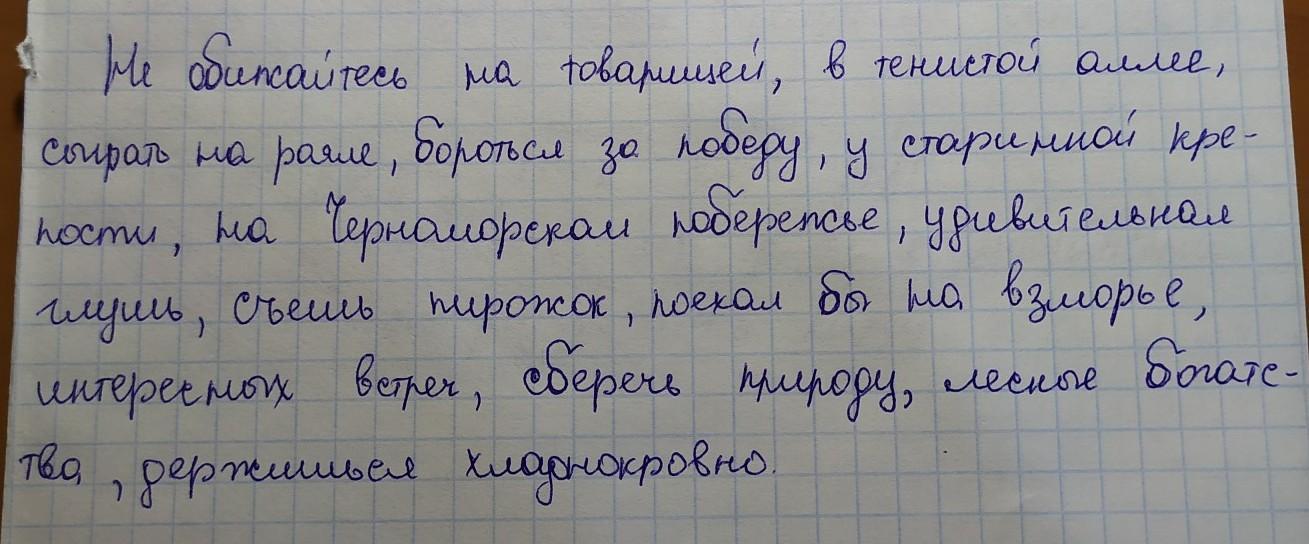 Не обижайтесь на товарищей, в тенистой аллее,
сыграть на раяле, бороться за победу, у старинной кре-
пости, на Черноморском побережье, удивительная
глушь, съешь пирожок, поехал бы на взморье,
интересных встреч, сберечь природу, лесные богатс-
тва, держишься хладнокровно.